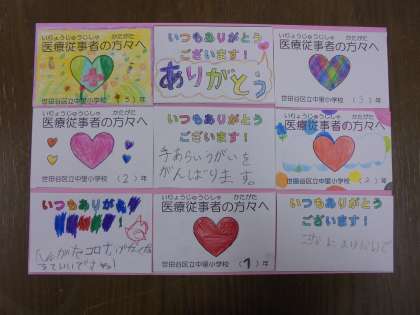 いりょうじゅうじしゃ かたがた
医療従事者の方々へ
世田谷区立中里小学校 (5)年
いつもありがとう
ございます!
ありがとう
いりょうじゅうじしゃ かたがた
医療従事者の方々へ
世田谷区立中里小学校 (3)年
いりょうじゅうじしゃ かたがた
医療従事者の方々へ
世田谷区立中里小学校 (2)年
いつもありがとう
ございます!
手あらいうがいを
がんばります。
いりょうじゅうじしゃ かたがた
医療従事者の方々へ
世田谷区立中里小学校 (2)年
いつもありがとう
いりょうじゅうじしゃ かたがた
医療従事者の方々へ
世田谷区立中里小学校 (1)年
いつもありがとう
ございます!